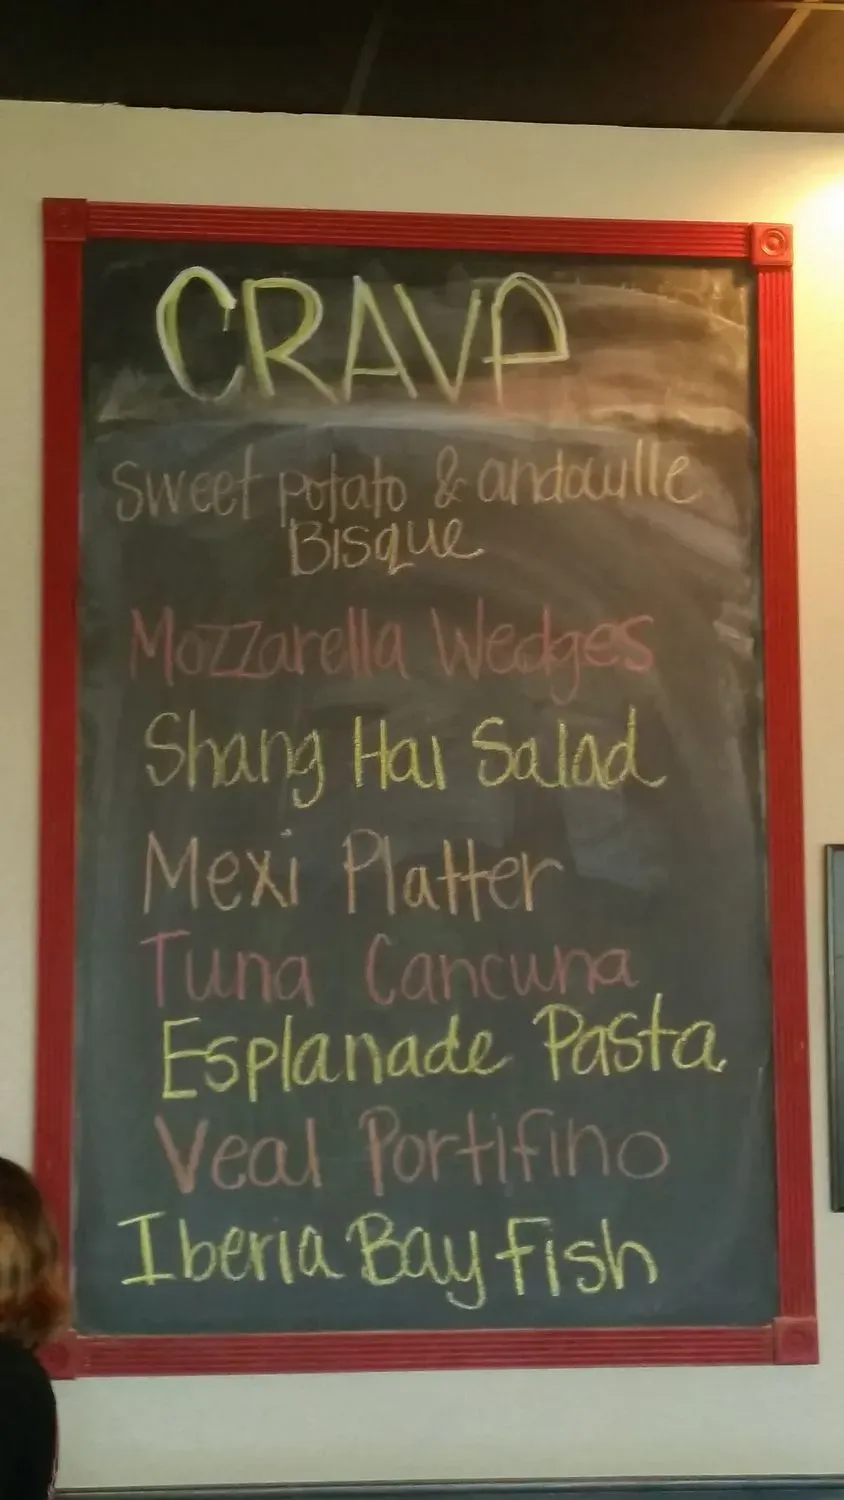 CRAVE
Sweet potato & andouille
Bisque
Mozzarella Wedges
Shang Hai Salad
Mexi Platter
Tuna Cancuna
Esplanade Pasta
Veal Portifino
Iberia Bay Fish